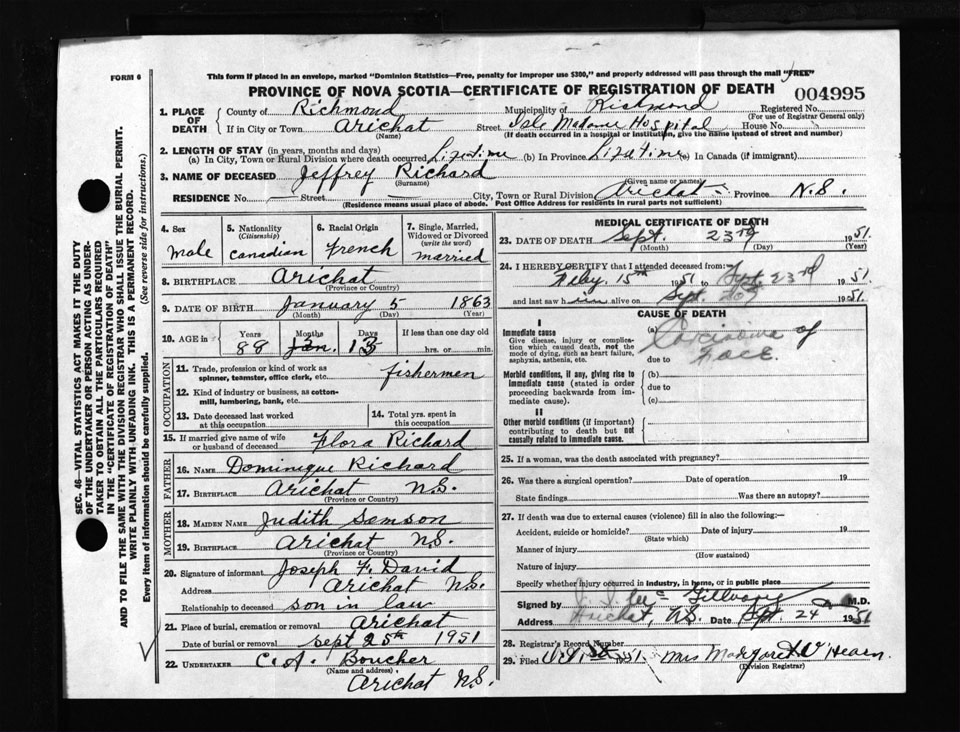 FORM 6
This form if placed in an envelope, marked "Dominion Statistics—Free, penalty for improper use $300," and properly addressed will pass through the mail "FREE"
PROVINCE OF NOVA SCOTIA—CERTIFICATE OF REGISTRATION OF DEATH
004995
1. PLACE OF DEATH
County of Richmond Municipality of Richmond Registered No.
(For use of Registrar General only)
If in City or Town Arichat Street Isle Madame Hospital House No.
(Name) (If death occurred in a hospital or institution, give the name instead of street and number)
2. LENGTH OF STAY (in years, months and days)
(a) In City, Town or Rural Division where death occurred Lifetime (b) In Province Lifetime (c) In Canada (if immigrant)
3. NAME OF DECEASED Jeffrey Richard
(Surname) (Given name or names)
RESIDENCE No. — Street City, Town or Rural Division Arichat Province N.S.
(Residence means usual place of abode. Post Office Address for residents in rural parts not sufficient)
4. Sex
male
5. Nationality
(Citizenship)
Canadian
6. Racial Origin
French
7. Single, Married, Widowed or Divorced
(write the word)
married
8. BIRTHPLACE Arichat
(Province or Country)
9. DATE OF BIRTH January 5 1863
(Month) (Day) (Year)
10. AGE in
Years Months Days If less than one day
88 13
hrs. or min.
OCCUPATION
11. Trade, profession or kind of work as spinner, teamster, office clerk, etc. fishermen
12. Kind of industry or business, as cotton-mill, lumbering, bank, etc.
13. Date deceased last worked at this occupation
14. Total yrs. spent in this occupation
15. If married give name of wife or husband of deceased Flora Richard
FATHER
16. NAME Dominique Richard
17. BIRTHPLACE Arichat N.S.
(Province or Country)
MOTHER
18. MAIDEN NAME Judith Samson
19. BIRTHPLACE Arichat N.S.
(Province or Country)
20. Signature of informant Joseph F. David
Address Arichat N.S.
Relationship to deceased son in law
21. Place of burial, cremation or removal Arichat
Date of burial or removal Sept 25th 1951
22. UNDERTAKER C. A. Boucher
(Name and address)
Arichat N.S.
MEDICAL CERTIFICATE OF DEATH
23. DATE OF DEATH Sept. 23rd 1951.
(Month) (Day) (Year)
24. I HEREBY CERTIFY that I attended deceased from:
Feby. 15th 1951 to Sept. 23rd 1951
and last saw him alive on Sept. 1951.
CAUSE OF DEATH
I
Immediate cause
Give disease, injury or complication which caused death, not the mode of dying, such as heart failure, asphyxia, asthenia, etc.
(a) Carcinoma of
due to Face.
Morbid conditions, if any, giving rise to immediate cause (stated in order proceeding backwards from immediate cause).
(b)
due to
(c)
II
Other morbid conditions (if important) contributing to death but not causally related to immediate cause.
25. If a woman, was the death associated with pregnancy?
26. Was there a surgical operation? Date of operation 19
State findings Was there an autopsy?
27. If death was due to external causes (violence) fill in also the following:—
Accident, suicide or homicide? Date of injury 19
(State which)
Manner of injury
(How sustained)
Nature of injury
Specify whether injury occurred in industry, in home, or in public place
Signed by M.D.
Address Arichat, N.S. Date Sept. 24 1951
28. Registrar's Record Number
29. Filed 1951. Mrs Margaret
(Division Registrar)
SEC. 46—VITAL STATISTICS ACT MAKES IT THE DUTY OF THE UNDERTAKER OR PERSON ACTING AS UNDERTAKER TO OBTAIN ALL THE PARTICULARS REQUIRED IN THE "CERTIFICATE OF REGISTRATION OF DEATH" AND TO FILE THE SAME WITH THE DIVISION REGISTRAR WHO SHALL ISSUE THE BURIAL PERMIT.
WRITE PLAINLY WITH UNFADING INK. THIS IS A PERMANENT RECORD.
Every item of information should be carefully supplied. (See reverse side for instructions.)